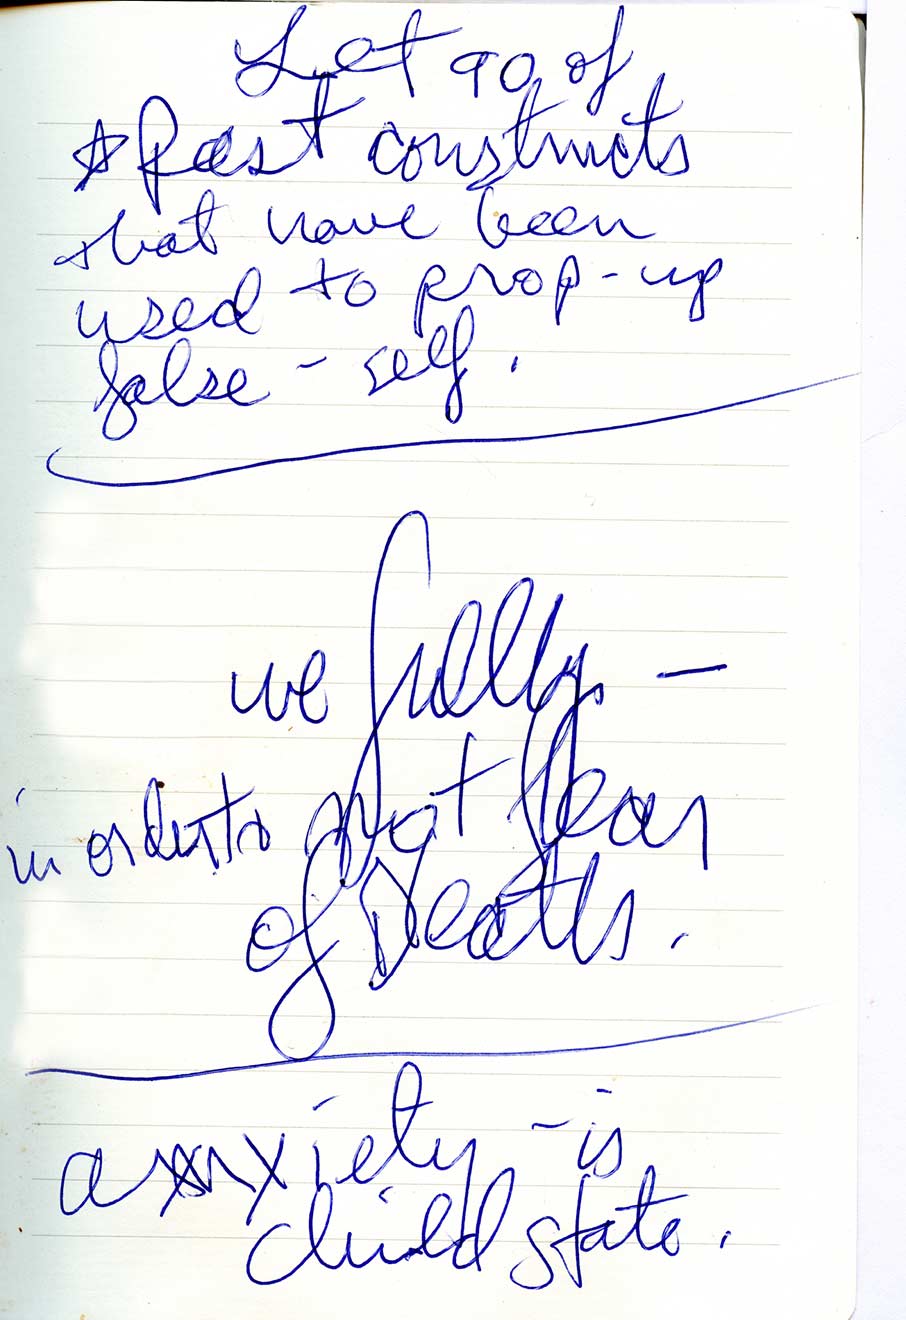 Let go of
☆ Past constructs
that have been
used to prop-up
false - self.
we fully -
in order to not fear
of Death.
anxiety - is
child state.